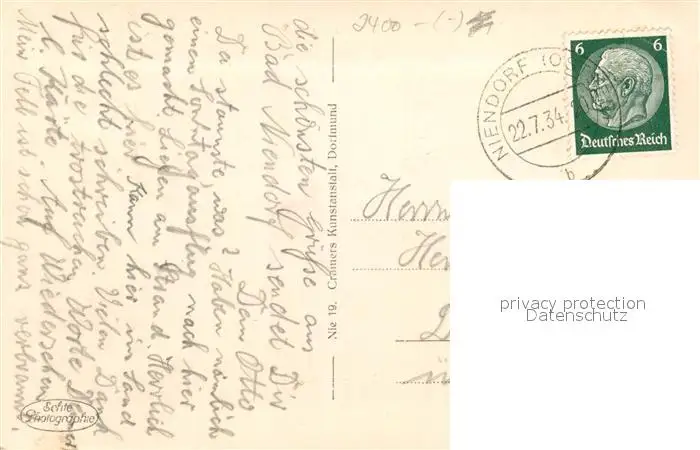 2400 – (-)
die schönsten Grüße aus
Bad Niendorf sendet Dir
Dein Otto
Da staunste, was? Haben nämlich
einen Sonntagsausflug nach hier
gemacht. Liegen am Strand. Herrlich
ist es hier. Kann hier im Sand
schlecht schreiben. Vielen Dank
für die trostreichen Worte Deiner
l. Karte. Auf Wiedersehen
Mein Fell ist schon ganz verbrannt.
Echte
Photographie
Nie 19. Cramers Kunstanstalt, Dortmund
NIENDORF (O
22.7.34
b
6 6
Deutsches Reich
Herrn
privacy protection
Datenschutz